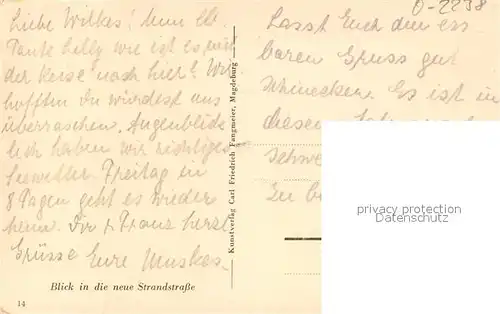 Liebe Wilkes! Nun lb.
Tante Lilly wie ist es mit
der Reise nach hier? Wir
hofften Du würdest uns
überraschen. Augenblick-
lich haben wir richtiges
Seewetter. Freitag in
8 Tagen geht es wieder
heim. Dir u Franz herzl.
Grüsse Eure Muskes.
Blick in die neue Strandstraße
14
Kunstverlag Carl Friedrich Fangmeier, Magdeburg
0-2238
Lasst Euch den ess
baren Gruss gut
schmecken. Es ist in
diesem
schwe
Zu b
privacy protection
Datenschutz